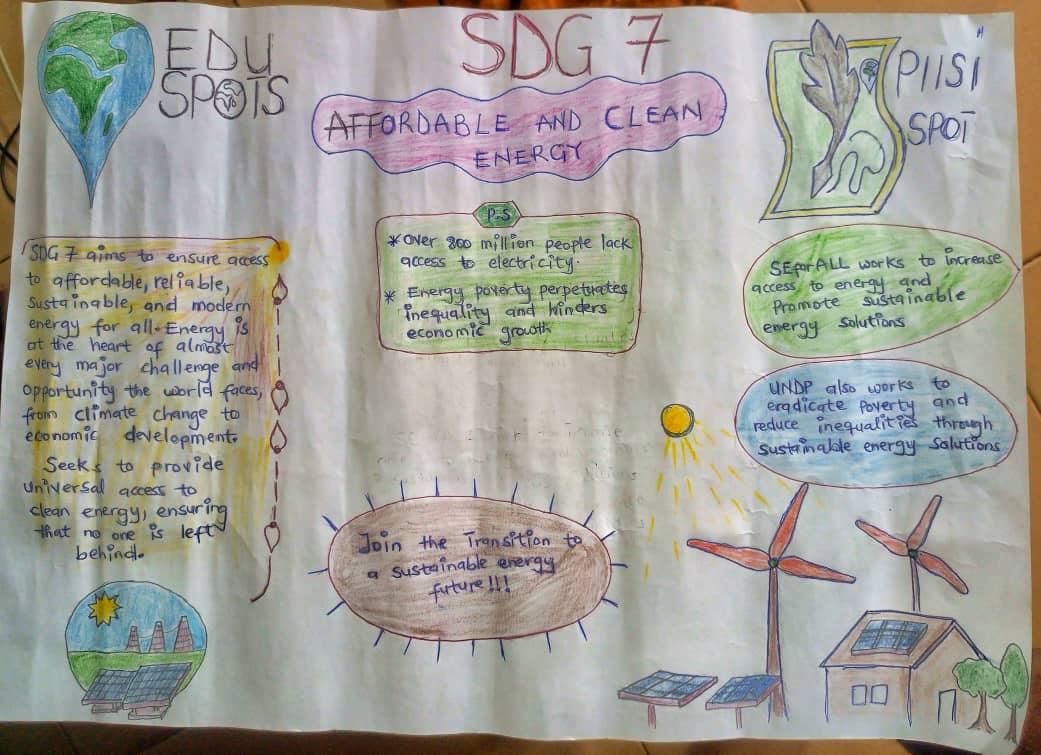 EDU
SPOTS
SDG 7
AFFORDABLE AND CLEAN
ENERGY
PIISI
SPOT
SDG 7 aims to ensure access
to affordable, reliable,
sustainable, and modern
energy for all. Energy is
at the heart of almost
every major challenge and
opportunity the world faces,
from climate change to
economic development.
Seeks to provide
universal access to
clean energy, ensuring
that no one is left
behind.
P.S
* Over 800 million people lack
access to electricity.
* Energy poverty perpetuates
inequality and hinders
economic growth
SEforALL works to increase
access to energy and
Promote sustainable
energy solutions
UNDP also works to
eradicate poverty and
reduce inequalities through
sustainable energy solutions
Join the Transition to
a sustainable energy
future!!!